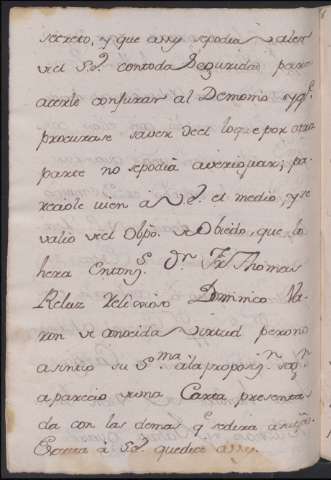 secreto, y que assi sepodia valer
vsel S.r contoda Seguridad para
acerle conjurar al Demonio y q.e
procurase saver deel loque por otra
parte no sepodia averiguar; pa-
reciole vien a el medio, y se
valio del Obpo. de Obiedo, que lo
hera Enton.s D.n Fr. Thomas
Reluz Relixioso Dominico Va-
ron de conocida virtud pero no
asintio su S.ria alaproposiz.n seg.n
aparecio vna Carta presenta-
da con las demas q.e
Escrita a quedice assi.